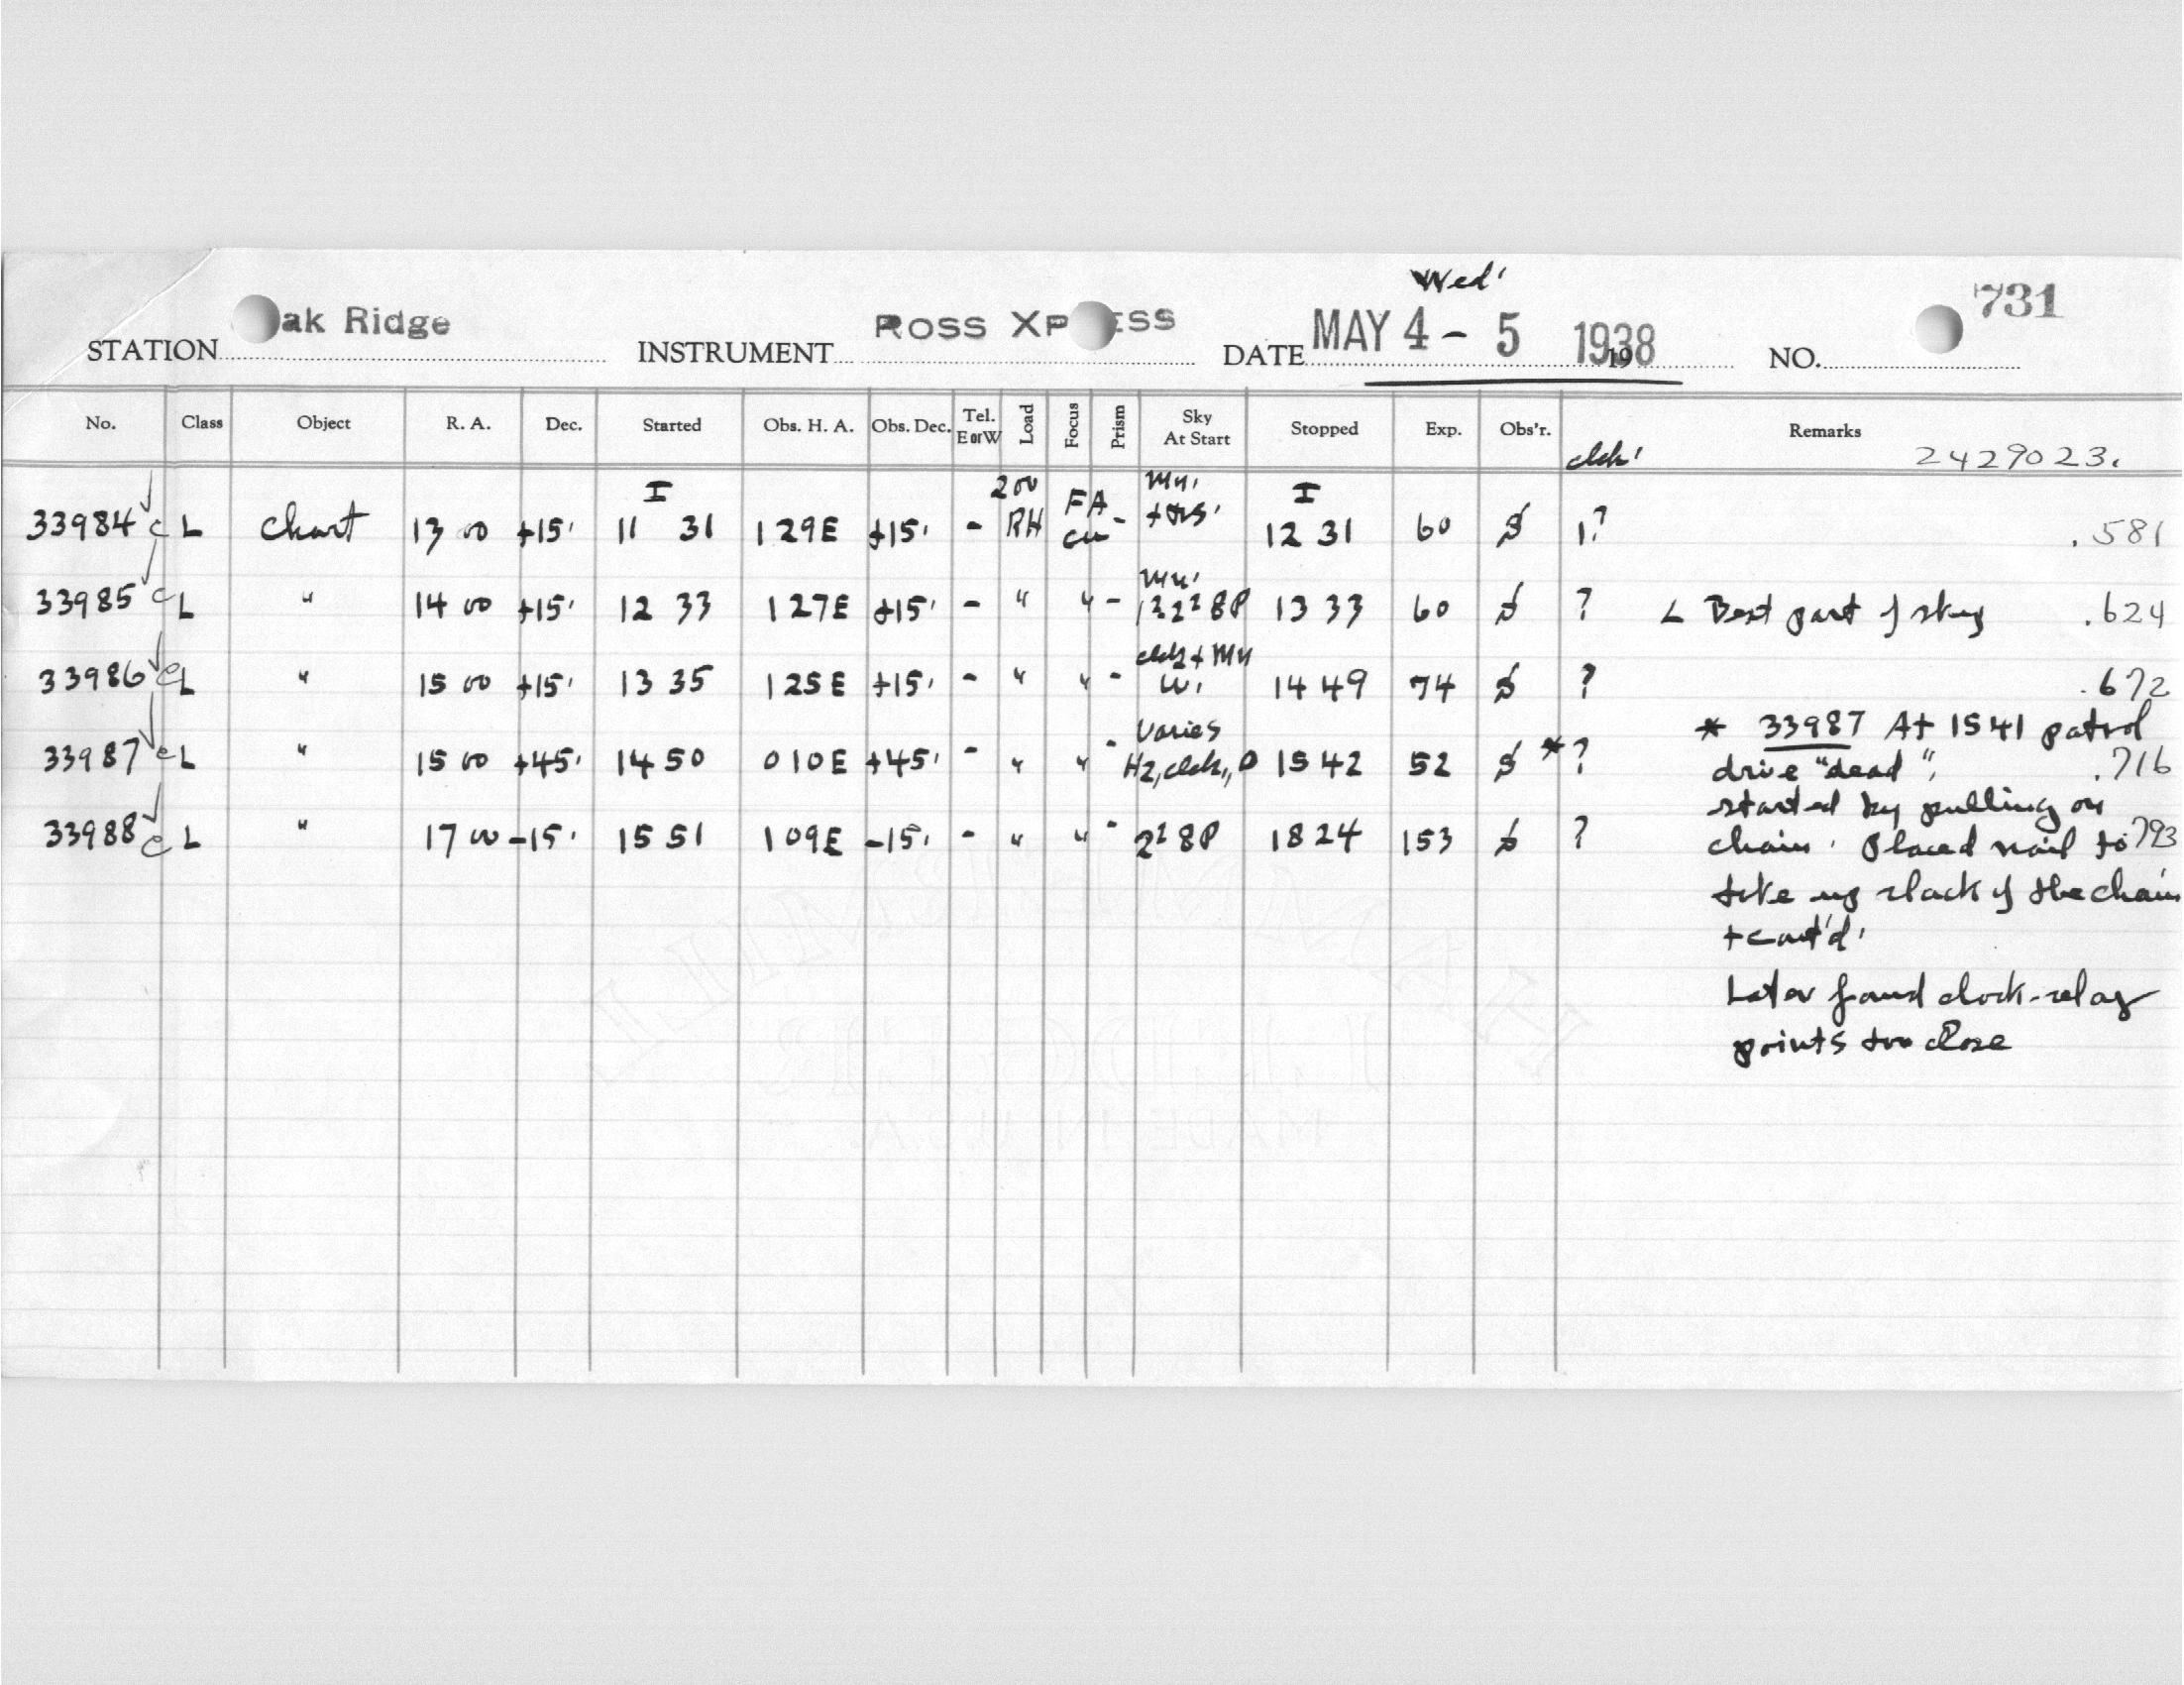 Wed'
STATION ak Ridge INSTRUMENT ROSS XP ESS DATE MAY 4 - 5 1938 19 NO. 731
No. Class Object R. A. Dec. Started Obs. H. A. Obs. Dec. Tel. E or W Load Focus Prism Sky At Start Stopped Exp. Obs'r. Remarks
2429023.
I 200 FA I
33984 c L Chart 13 00 +15' 11 31 129E +15' - RH - 12 31 60 1? .581
33985 c L " 14 00 +15' 12 33 127E +15' - " " - 13 33 60 ? L Best part of sky .624
33986 c L " 15 00 +15' 13 35 125E +15' - " " - W. 14 49 74 ? .672
Varies
33987 c L " 15 00 +45' 14 50 010E +45' - " " - Hz, 15 42 52 *?
33988 c L " 17 00 -15' 15 51 109E -15' - " " - 2² 8P 18 24 153 ?
* 33987 At 1541 patrol
drive "dead", .716
started by pulling on
chain. Placed nail to .793
take up slack of the chain
+ cont'd.
Later found clock-relay
points too close
MADE IN U.S.A.